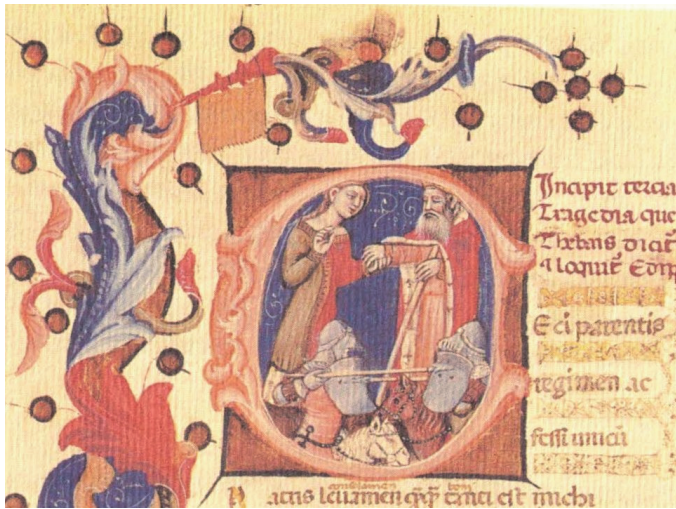 Incipit tercia
Tragedia que
Thebais dicit
alloquit Edip
Eci parentis
regimen ac
fessi unicū
atris leuamen tanti est michi